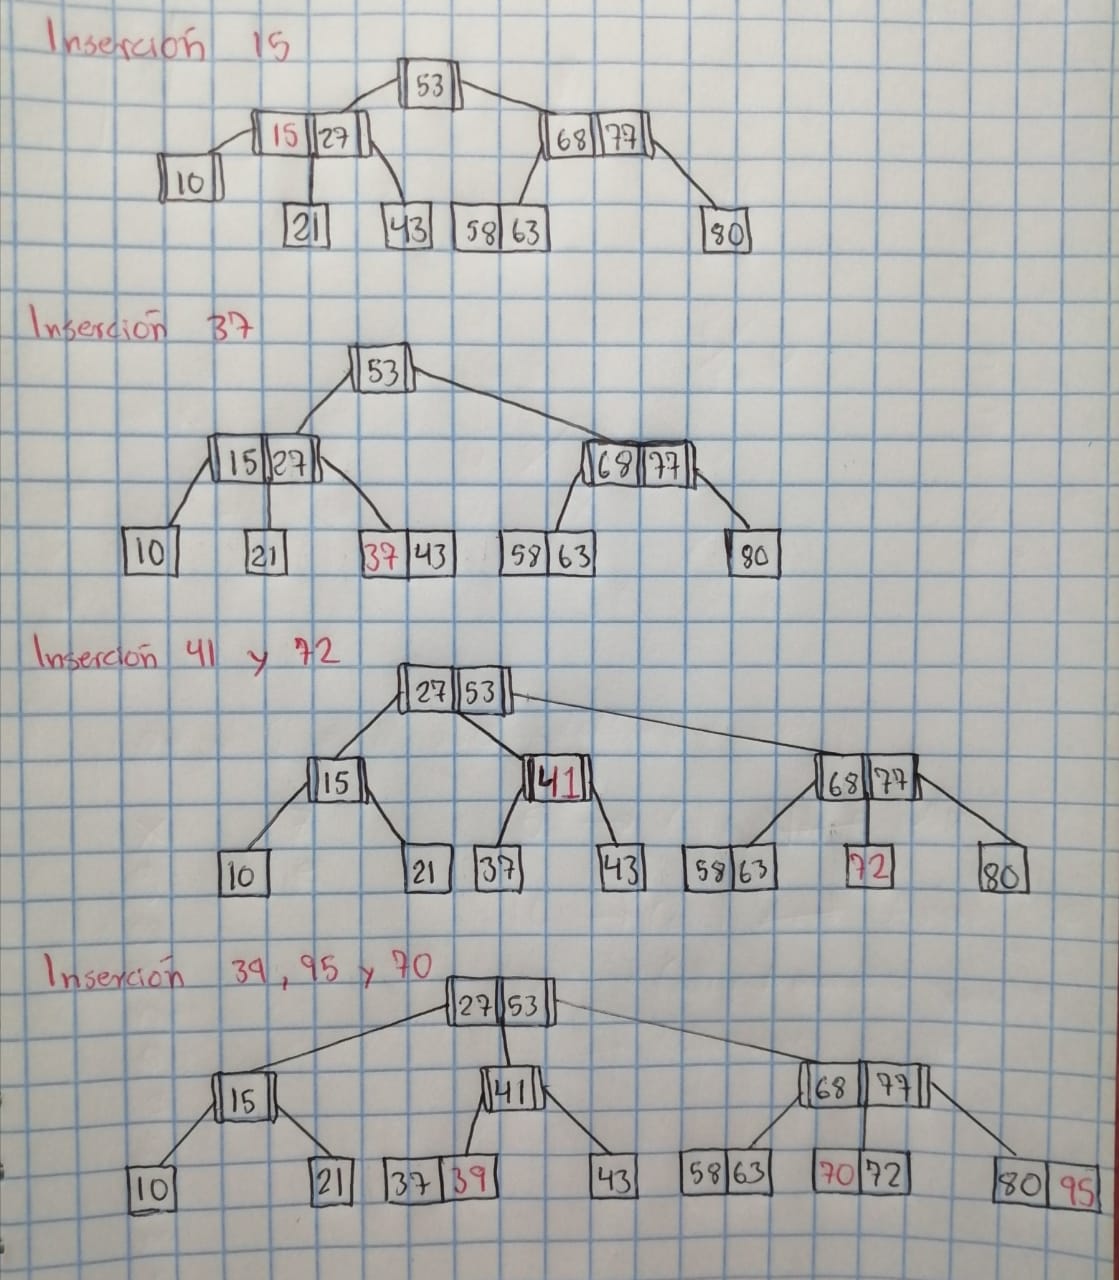 Inserción 15
53
15 27 68 77
10
21 43 58 63 80
Inserción 37
53
15 27 68 77
10 21 37 43 58 63 80
Inserción 41 y 72
27 53
15 41 68 77
10 21 37 43 58 63 72 80
Inserción 39, 95 y 70
27 53
15 41 68 77
10 21 37 39 43 58 63 70 72 80 95